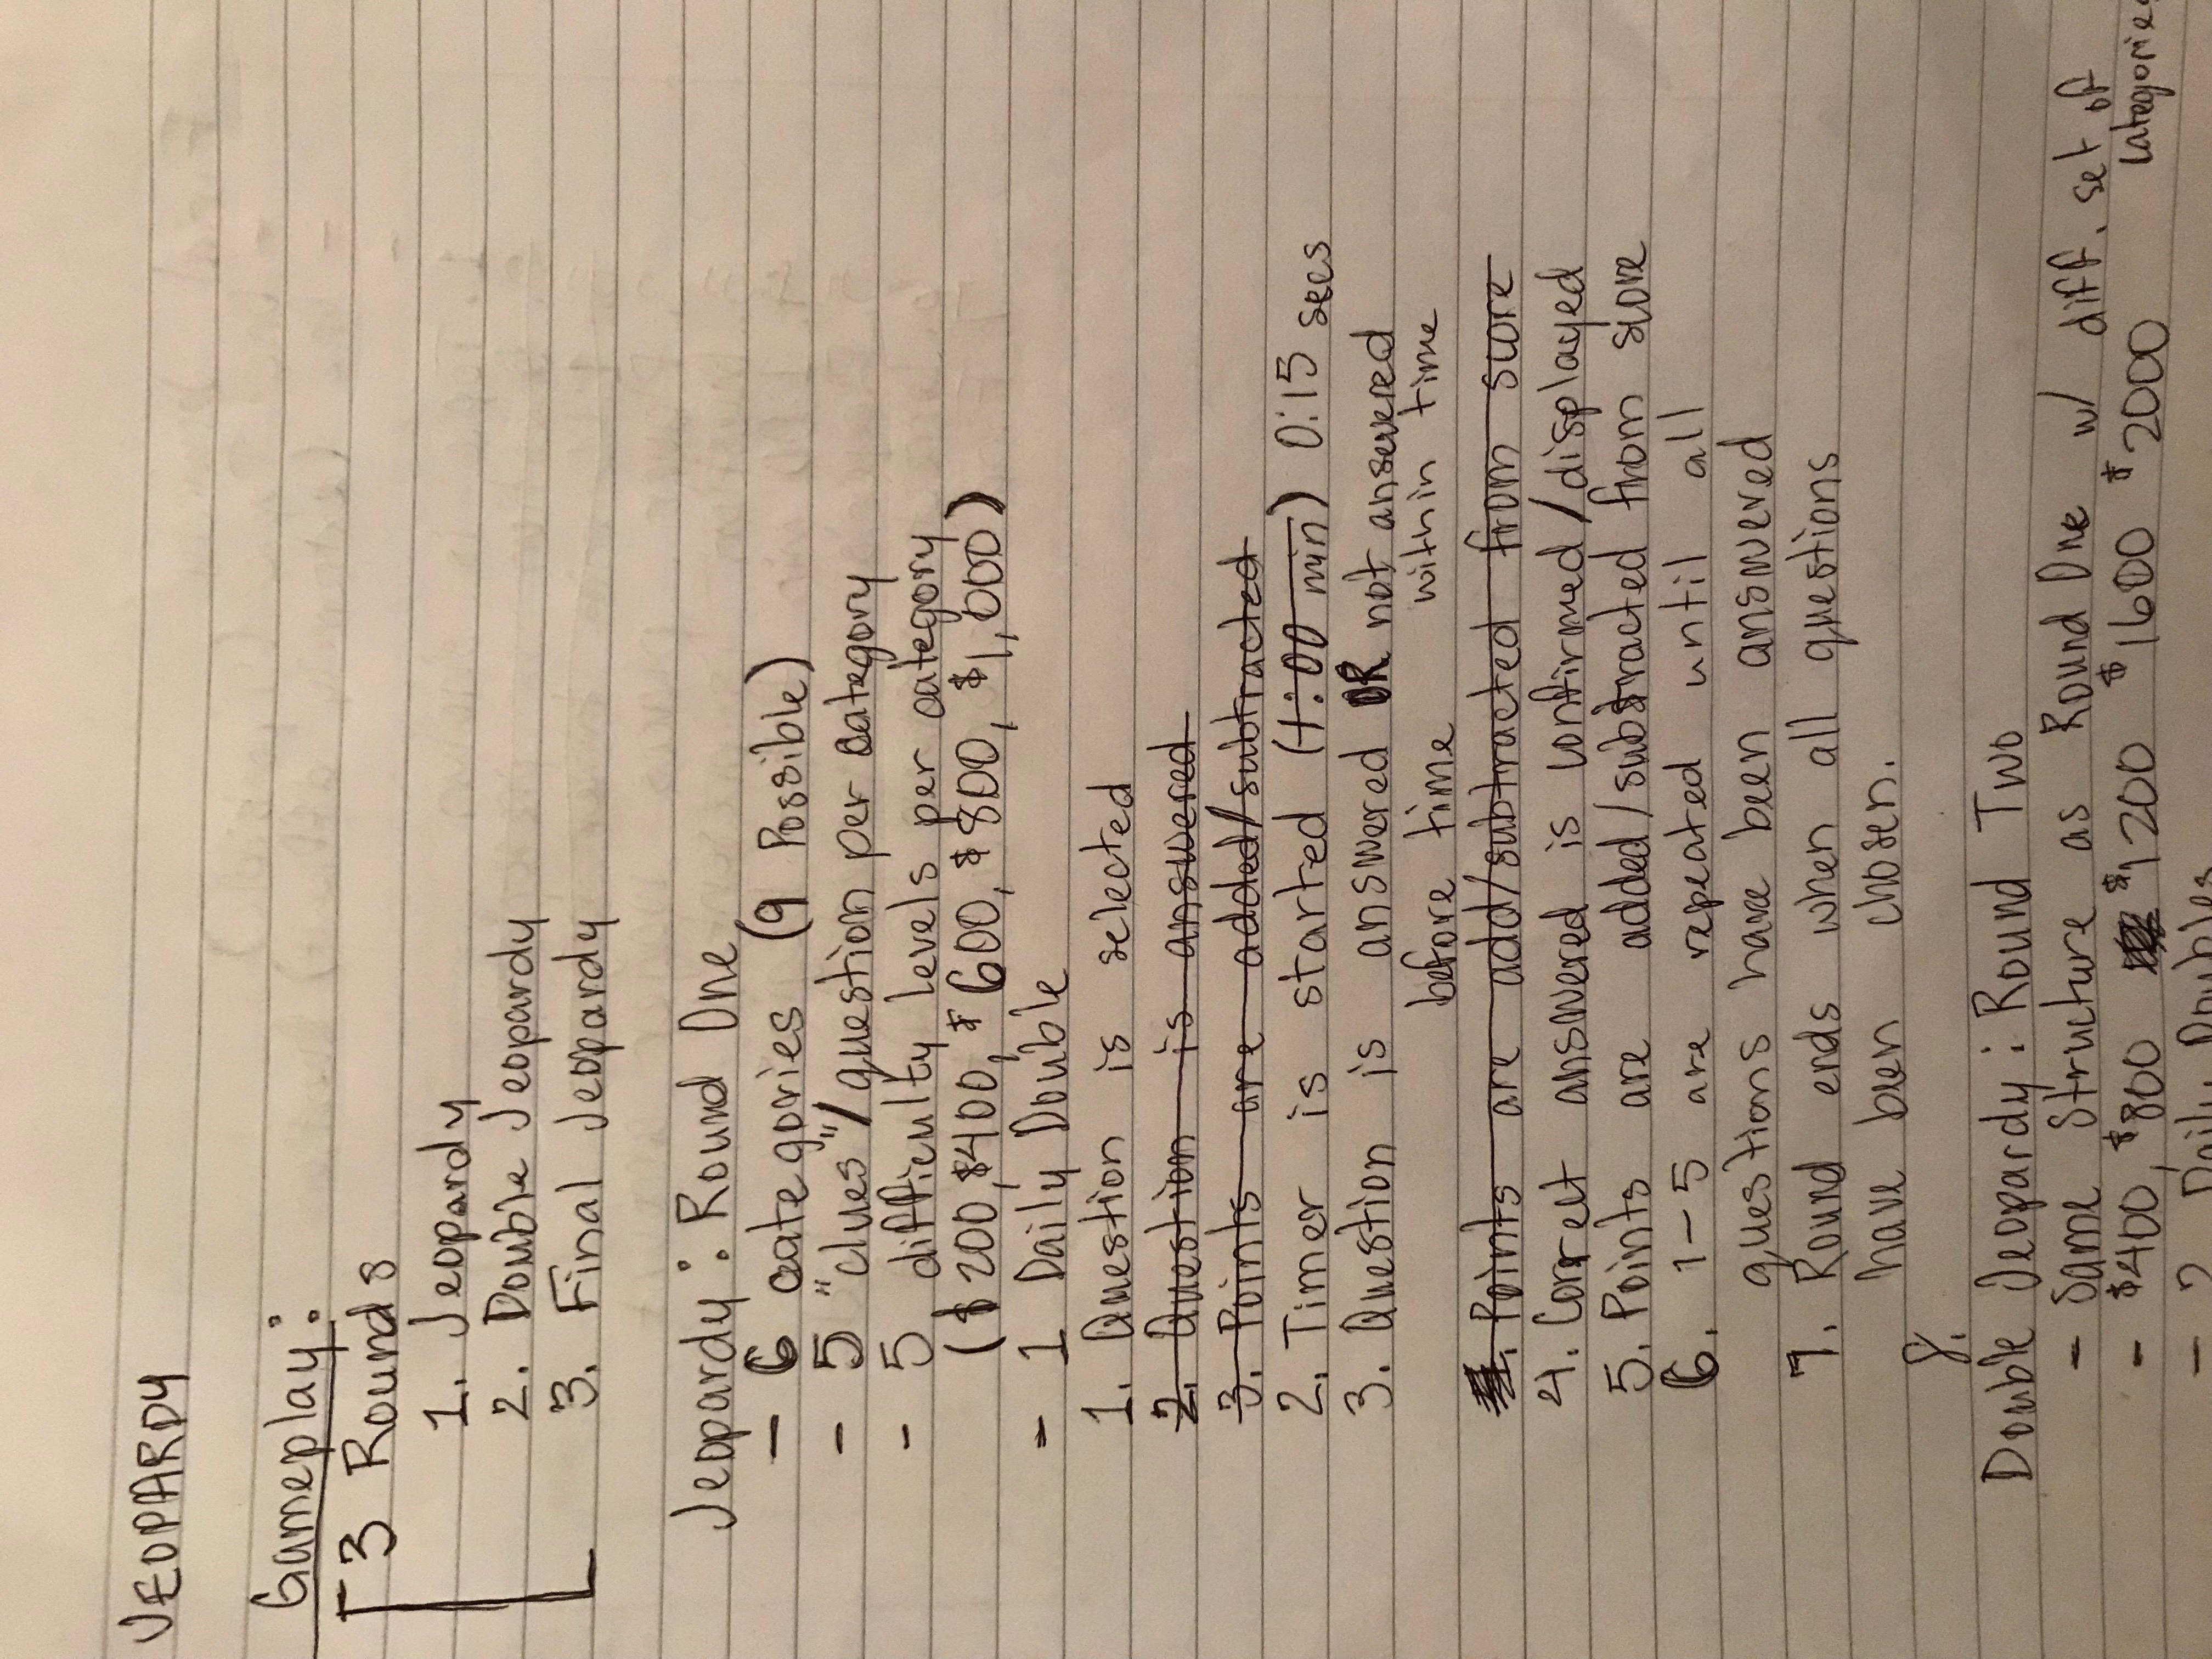 JEOPARDY
Gameplay:
3 Rounds
1. Jeopardy
2. Double Jeopardy
3. Final Jeopardy
Jeopardy: Round One
- 6 categories (9 Possible)
- 5 "clues"/question per category
- 5 difficulty levels per category
($200, $400, $600, $800, $1,000)
- 1 Daily Double
1. Question is selected
2. Question is answered
3. Points are added/subtracted
2. Timer is started (1:00 min) 0:15 secs
3. Question is answered OR not answered
before time within time
Points are add/subtracted from score
4. Correct answered is confirmed/displayed
5. Points are added/subtracted from score
6. 1-5 are repeated until all
questions have been answered
7. Round ends when all questions
have been chosen.
8.
Double Jeopardy: Round Two
- Same Structure as Round One w/ diff. set of
- $400, $800 $1200 $1600 $2000 categories
- 2 Daily Doubles